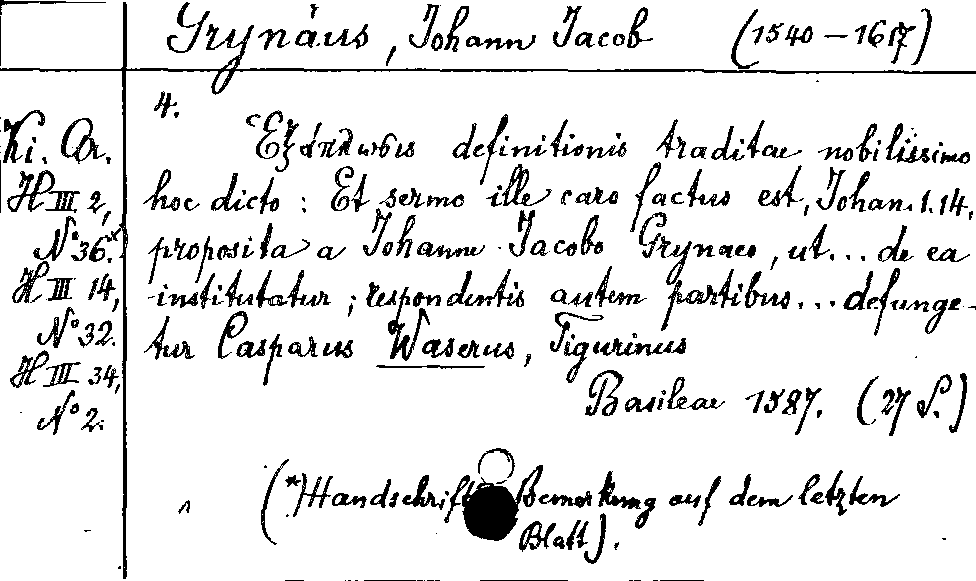 Grynäus, Johann Jacob (1540 – 1617)
4.
Ki. Ar.
H III 2,
No 36.*
H III 14,
No 32.
H III 34,
No 2.
Ἑξάπλωσις definitionis traditae nobilissimo
hoc dicto : Et sermo ille caro factus est, Johan. 1.14,
proposita a Johanne Jacobo Grynaeo, ut... de ea
institutatur ; respondentis autem partibus... defunge-
tur Casparus Waserus, Tigurinus
Basileae 1587. (27 S.)
(*) Handschriftl. Bemerkung auf dem letzten
Blatt).